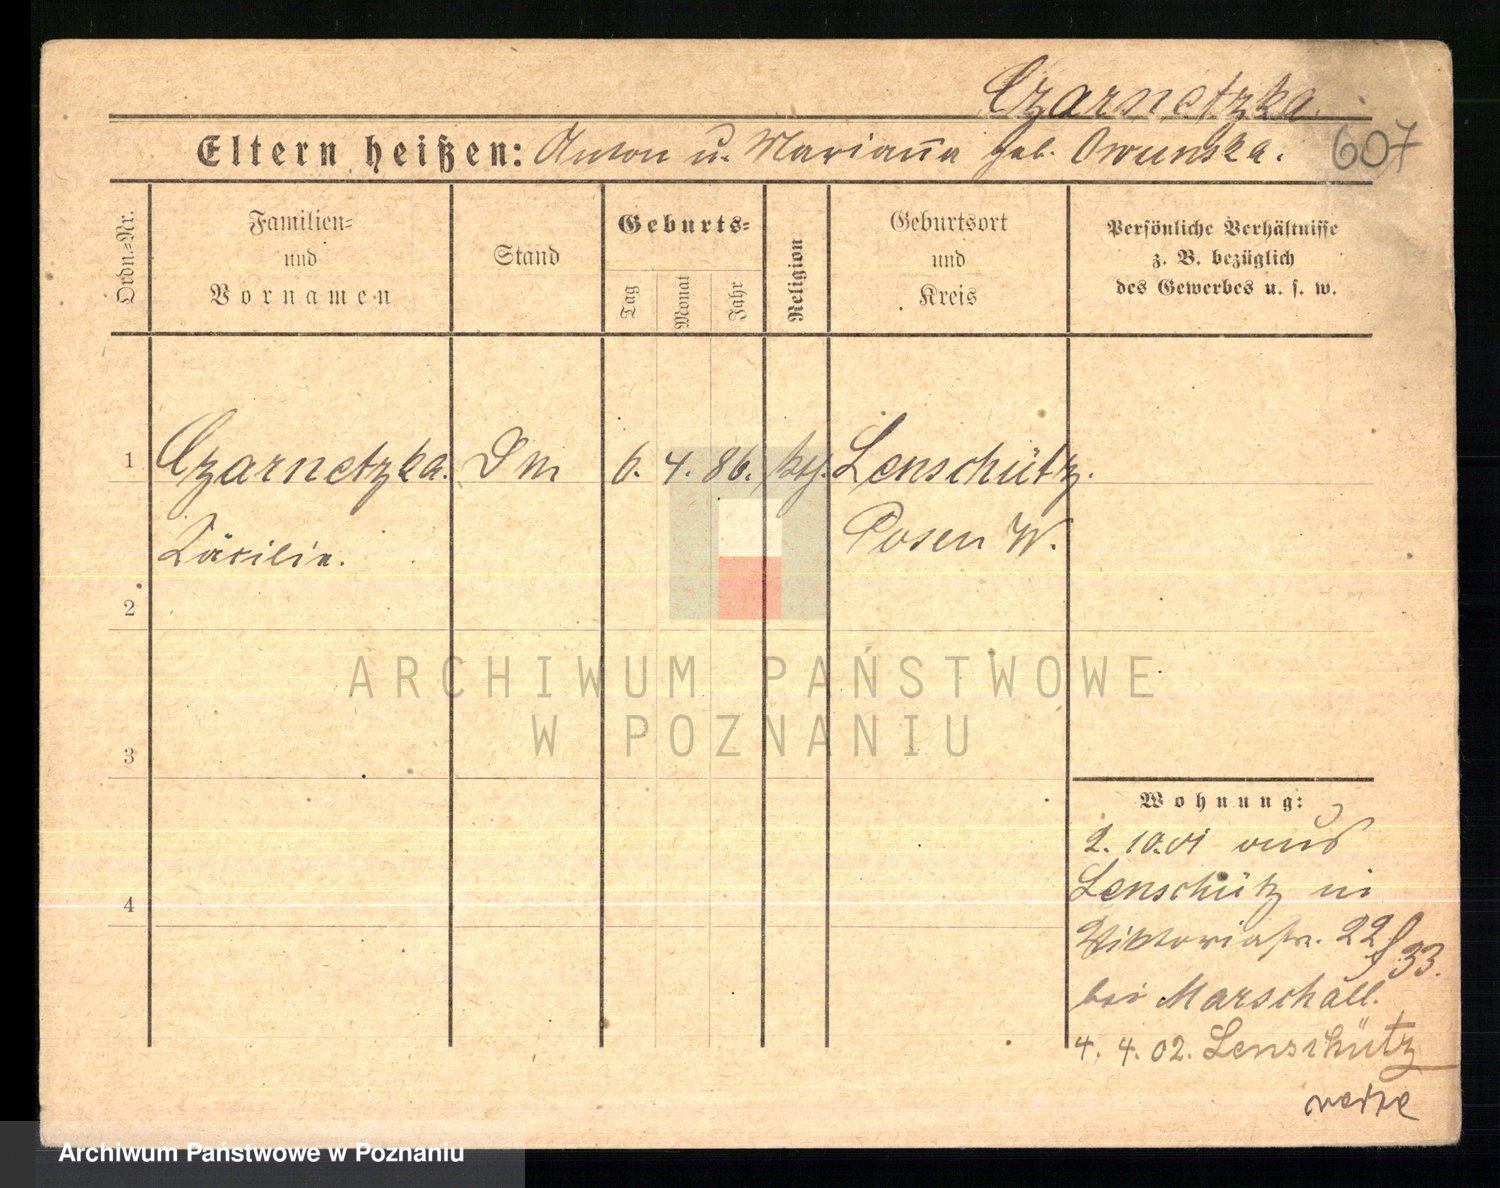 Czarnetzka.
Eltern heißen: Anton u. Marianna geb. Owunska. 607
Ordn.=Nr.
Familien=
und
Vornamen
Stand
Geburts=
Tag
Monat
Jahr
Religion
Geburtsort
und
Kreis
Persönliche Verhältnisse
z. B. bezüglich
des Gewerbes u. s. w.
1 Czarnetzka. Dm 6. 4. 86. ktf. Lenschütz.
Cäcilie. Posen W.
2
3
4
Wohnung:
2. 10.01 aus
Lenschütz in
Viktoriastr. 22
33.
bei Marschall.
4. 4. 02. Lenschütz
ARCHIWUM PAŃSTWOWE
W POZNANIU
Archiwum Państwowe w Poznaniu